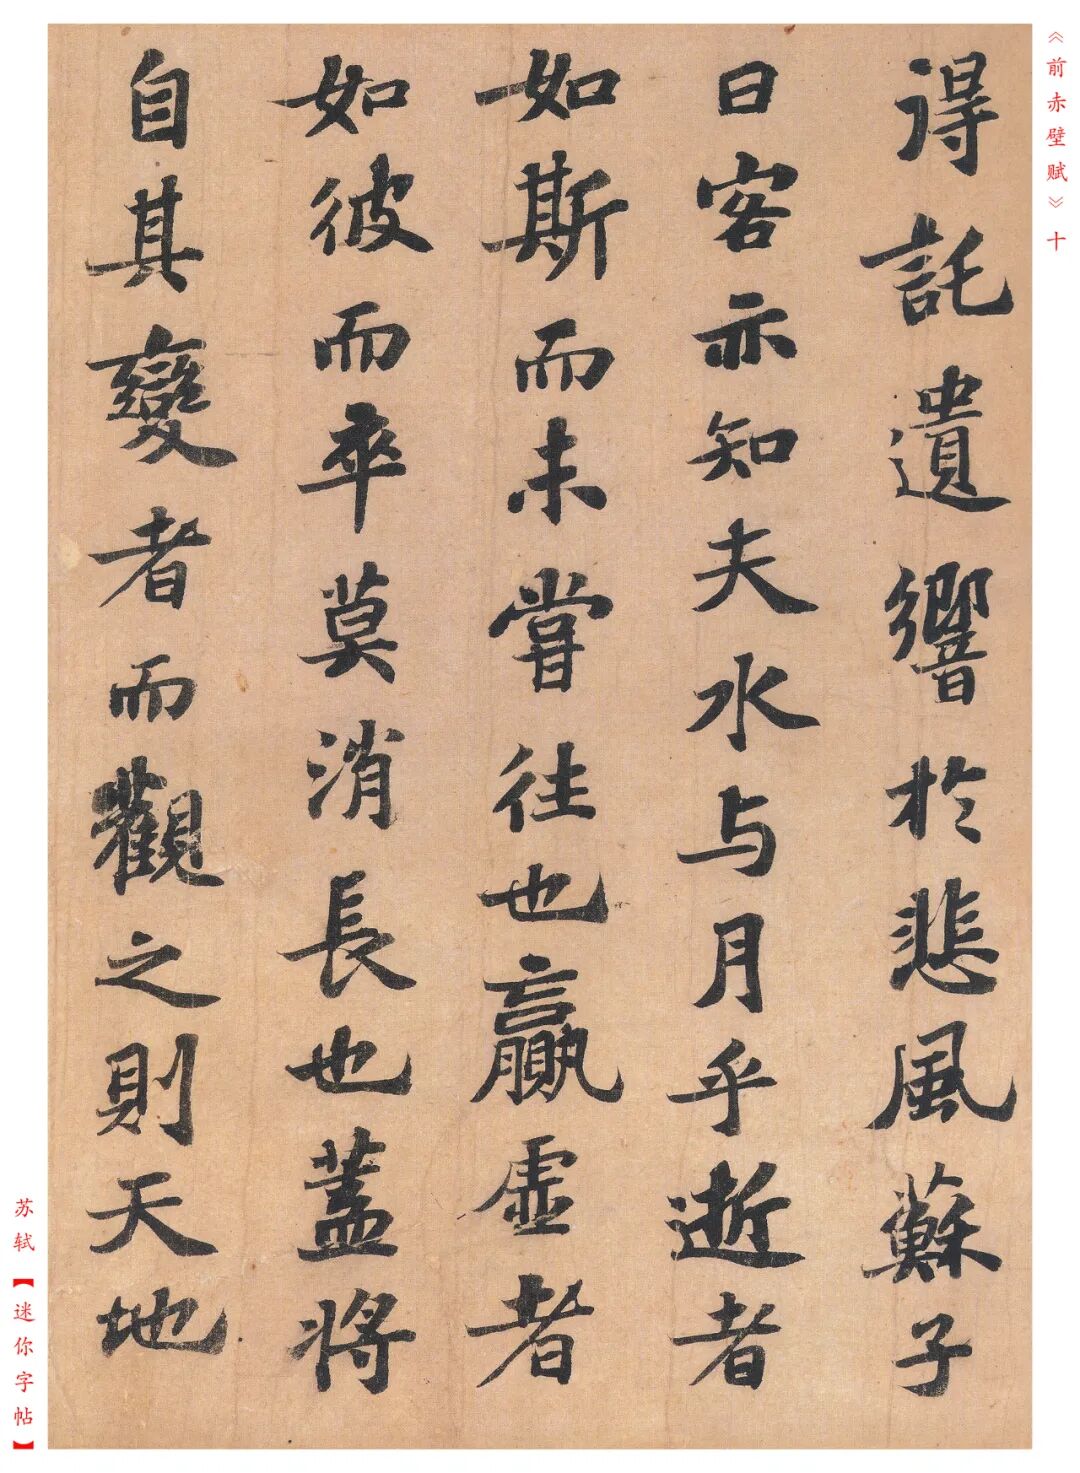 《前赤壁赋》十
得託遺響於悲風蘇子
曰客亦知夫水与月乎逝者
如斯而未嘗往也贏虛者
如彼而卒莫消長也蓋將
自其變者而觀之則天地
苏轼【迷你字帖】